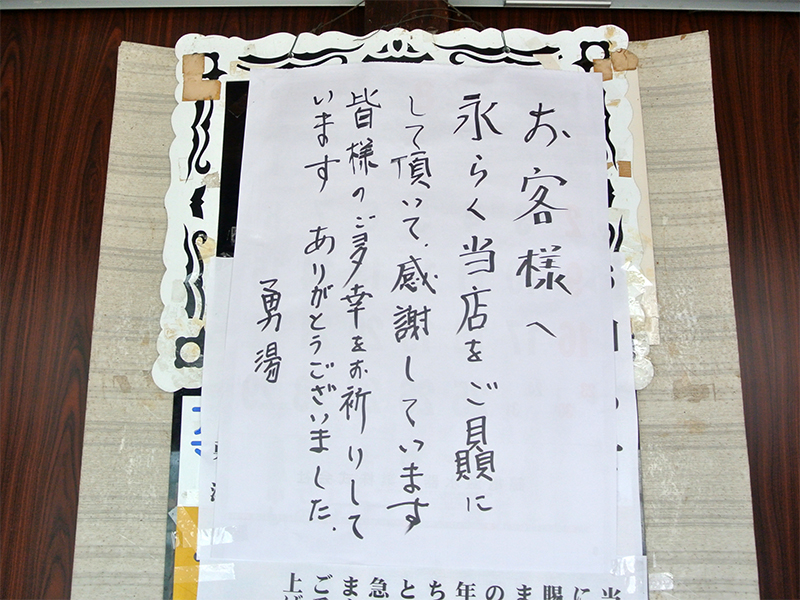 お客様へ
永らく当店をご贔に
して頂いて、感謝しています
皆様のご多幸をお祈りして
います ありがとうございました.
勇湯
当
に
賜
ま
の
年
ち
と
急
ま
ご
上